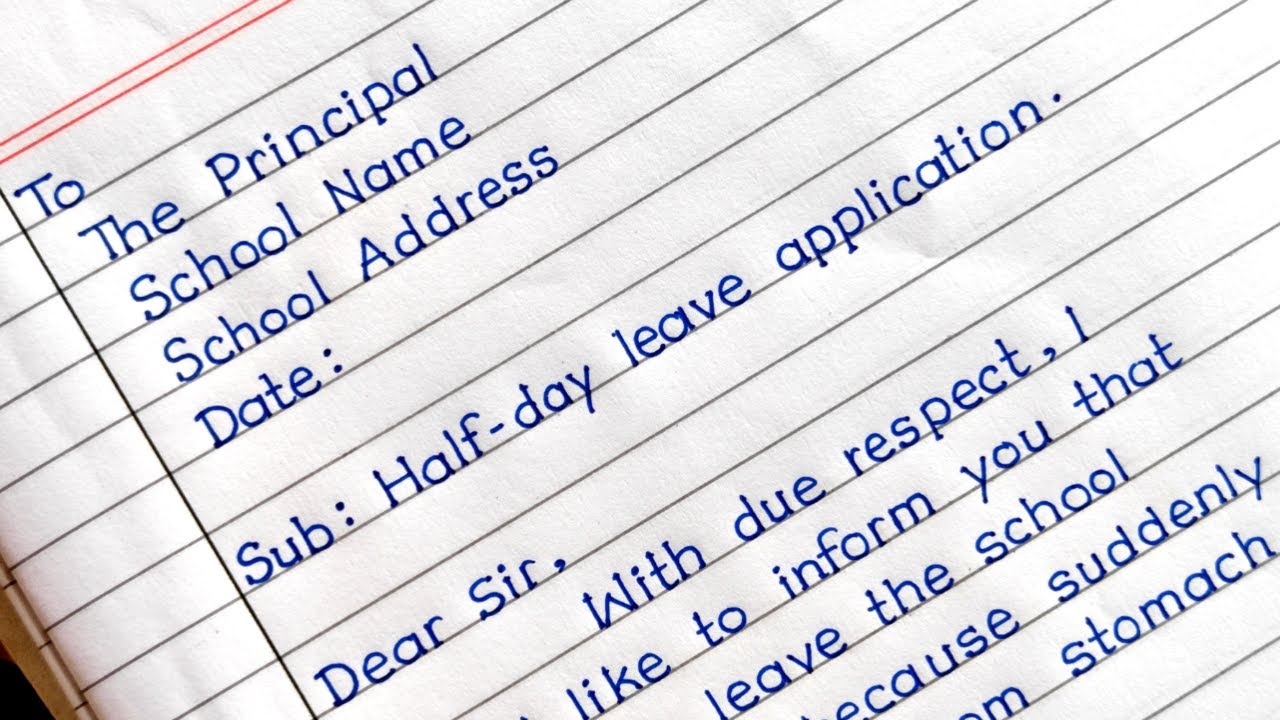 To
The Principal
School Name
School Address
Date:
Sub: Half-day leave application.
Dear Sir,
With due respect, I
like to inform you that
leave the school
because suddenly
stomach